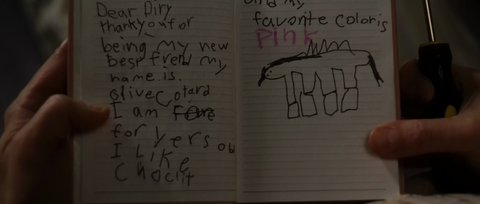 Dear Diry
thankyou for
being my new
best frend my
name is.
olive Cotard
I am
for yers old
I Like
Choclit
and my
favorite color is
Pink